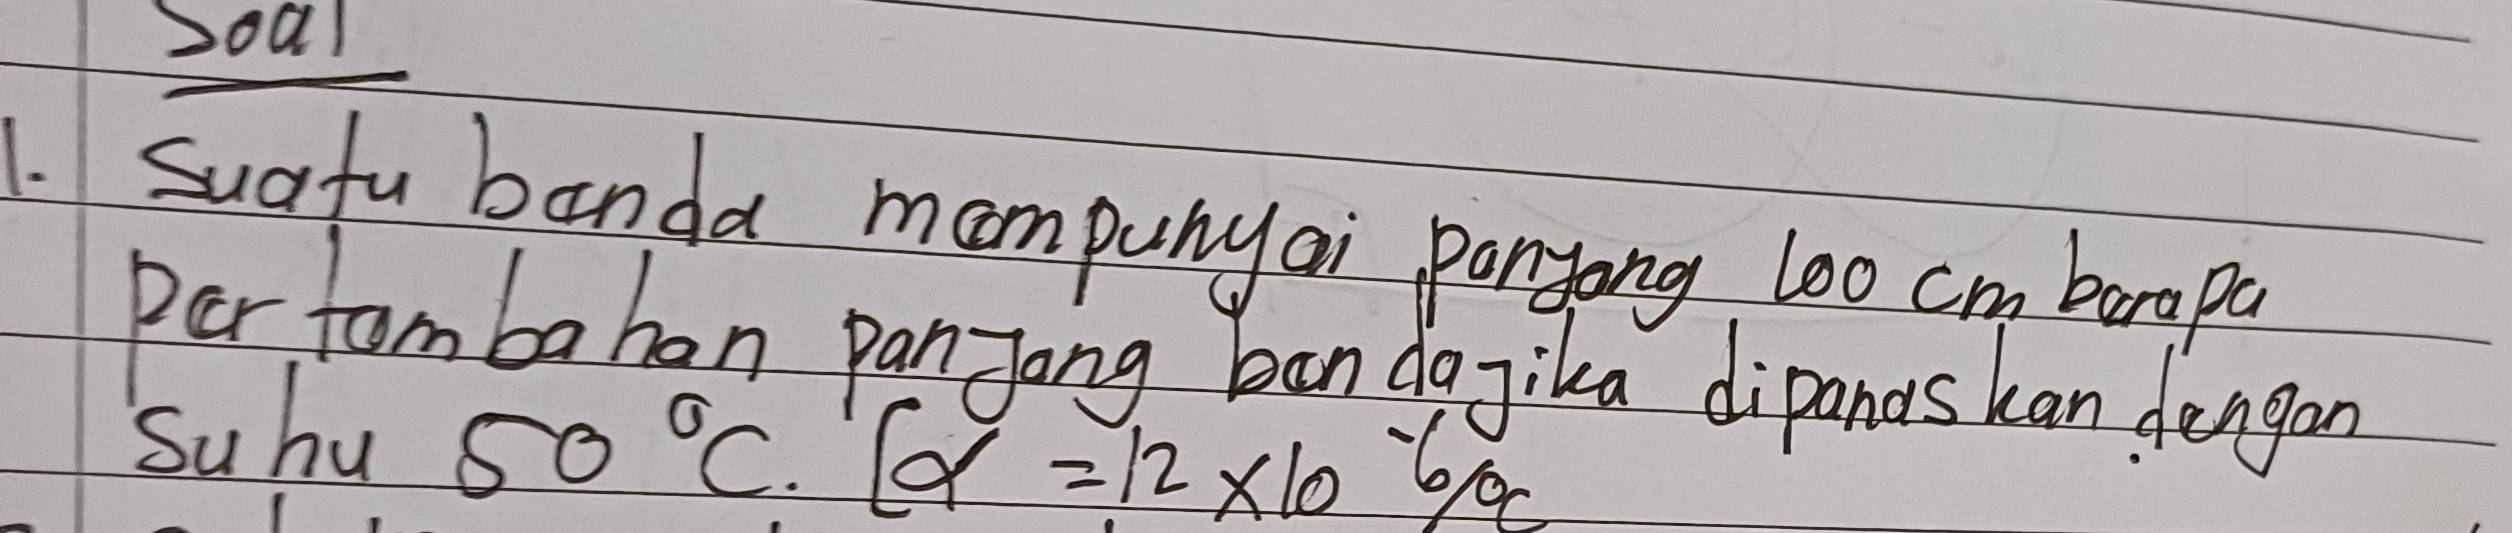 Soal
1. Suatu benda mempunyai panjang 100 cm berapa
pertambahan panjang benda jika dipanaskan dengan
Suhu 50 °C. [α = 12 × 10⁻⁶/°C